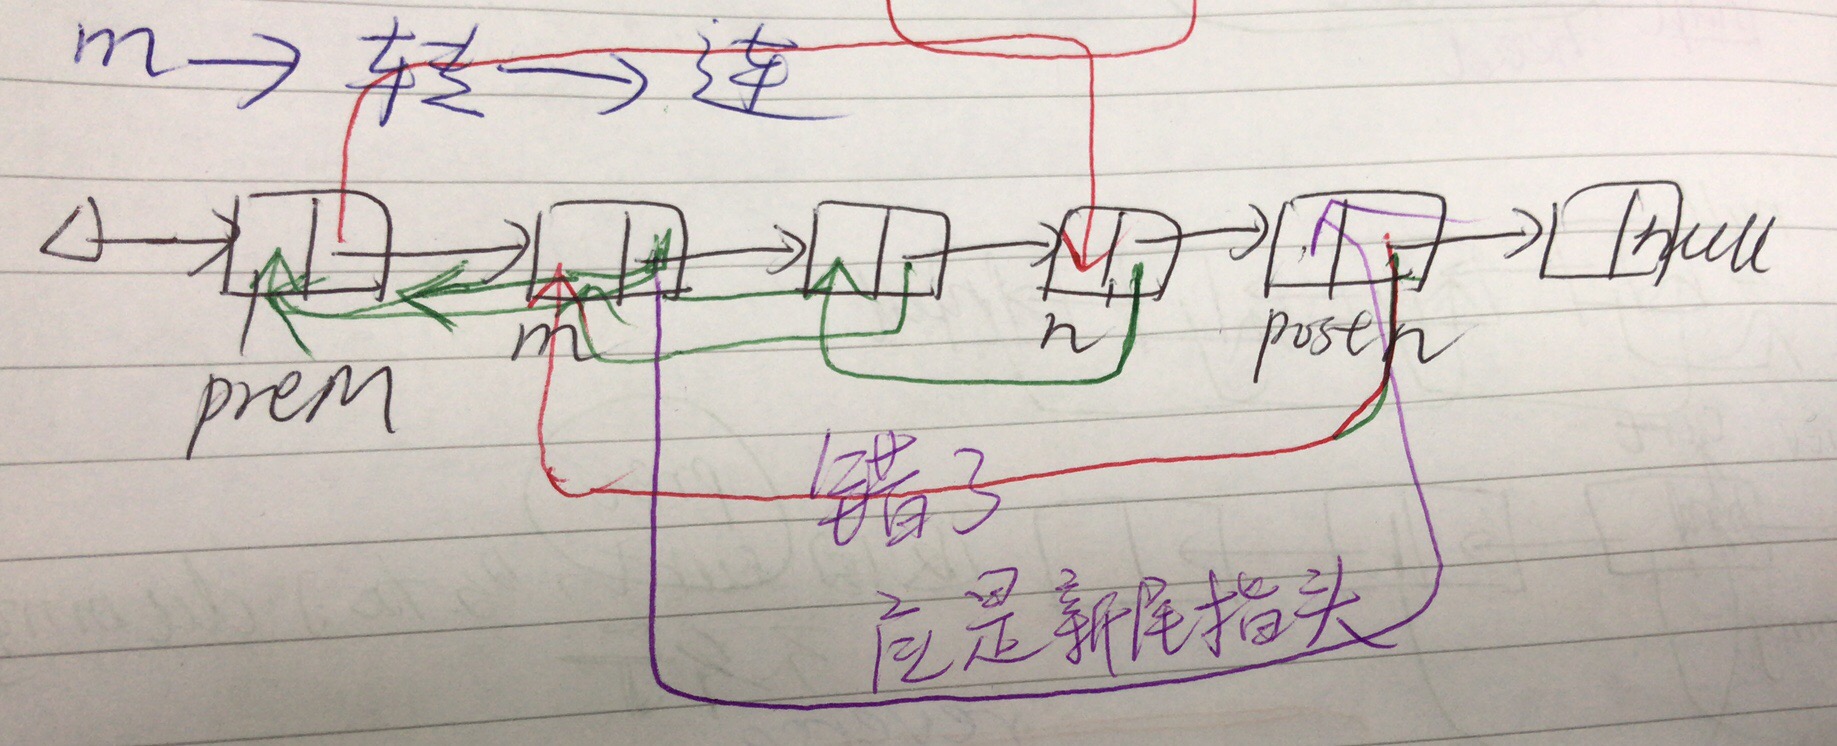 m → 转 → 连
null
prem m n posen
错了
应是新尾指头